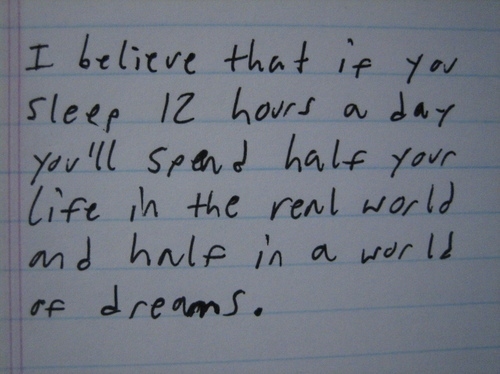 I believe that if you
sleep 12 hours a day
you'll spend half your
life in the real world
and half in a world
of dreams.